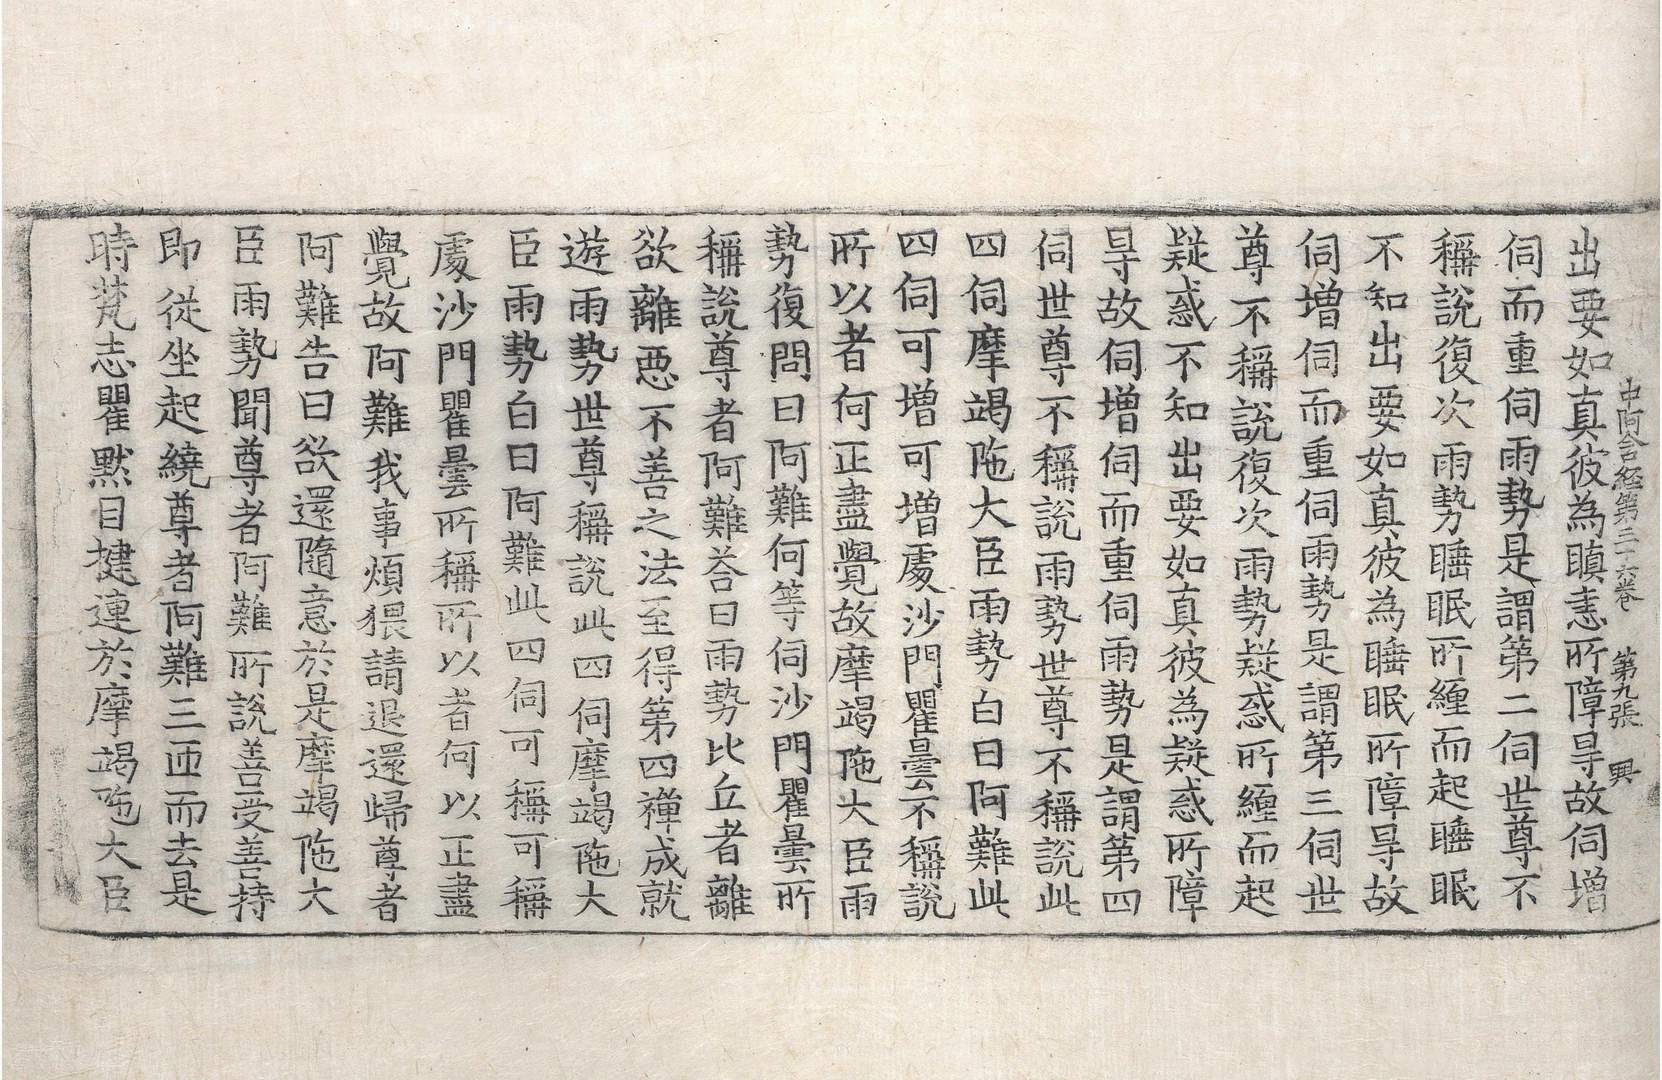 中阿含經第三十六卷　第九張　興
出要如真彼為瞋恚所障㝵故伺增
伺而重伺雨勢是謂第二伺世尊不
稱說復次雨勢睡眠所纏而起睡眠
不知出要如真彼為睡眠所障㝵故
伺增伺而重伺雨勢是謂第三伺世
尊不稱說復次雨勢疑惑所纏而起
疑惑不知出要如真彼為疑惑所障
㝵故伺增伺而重伺雨勢是謂第四
伺世尊不稱說雨勢世尊不稱說此
四伺摩竭陁大臣雨勢白曰阿難此
四伺可增可增處沙門瞿曇不稱說
所以者何正盡覺故摩竭陁大臣雨
勢復問曰阿難何等伺沙門瞿曇所
稱說尊者阿難荅曰雨勢比丘者離
欲離惡不善之法至得第四禪成就
遊雨勢世尊稱說此四伺摩竭陁大
臣雨勢白曰阿難此四伺可稱可稱
處沙門瞿曇所稱所以者何以正盡
覺故阿難我事煩猥請退還歸尊者
阿難告曰欲還隨意於是摩竭陁大
臣雨勢聞尊者阿難所說善受善持
即從坐起繞尊者阿難三匝而去是
時梵志瞿默目揵連於摩竭陁大臣